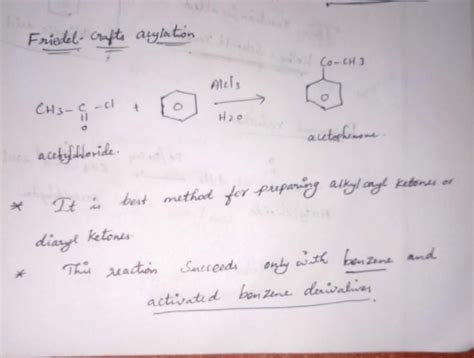 Friedel-Crafts acylation
CO-CH3
CH3-C-Cl + AlCl3
O H2O
acetylchloride. acetophenone.
* It is best method for preparing alkyl aryl ketones or
diaryl ketones.
* This reaction succeeds only with benzene and
activated benzene derivatives.